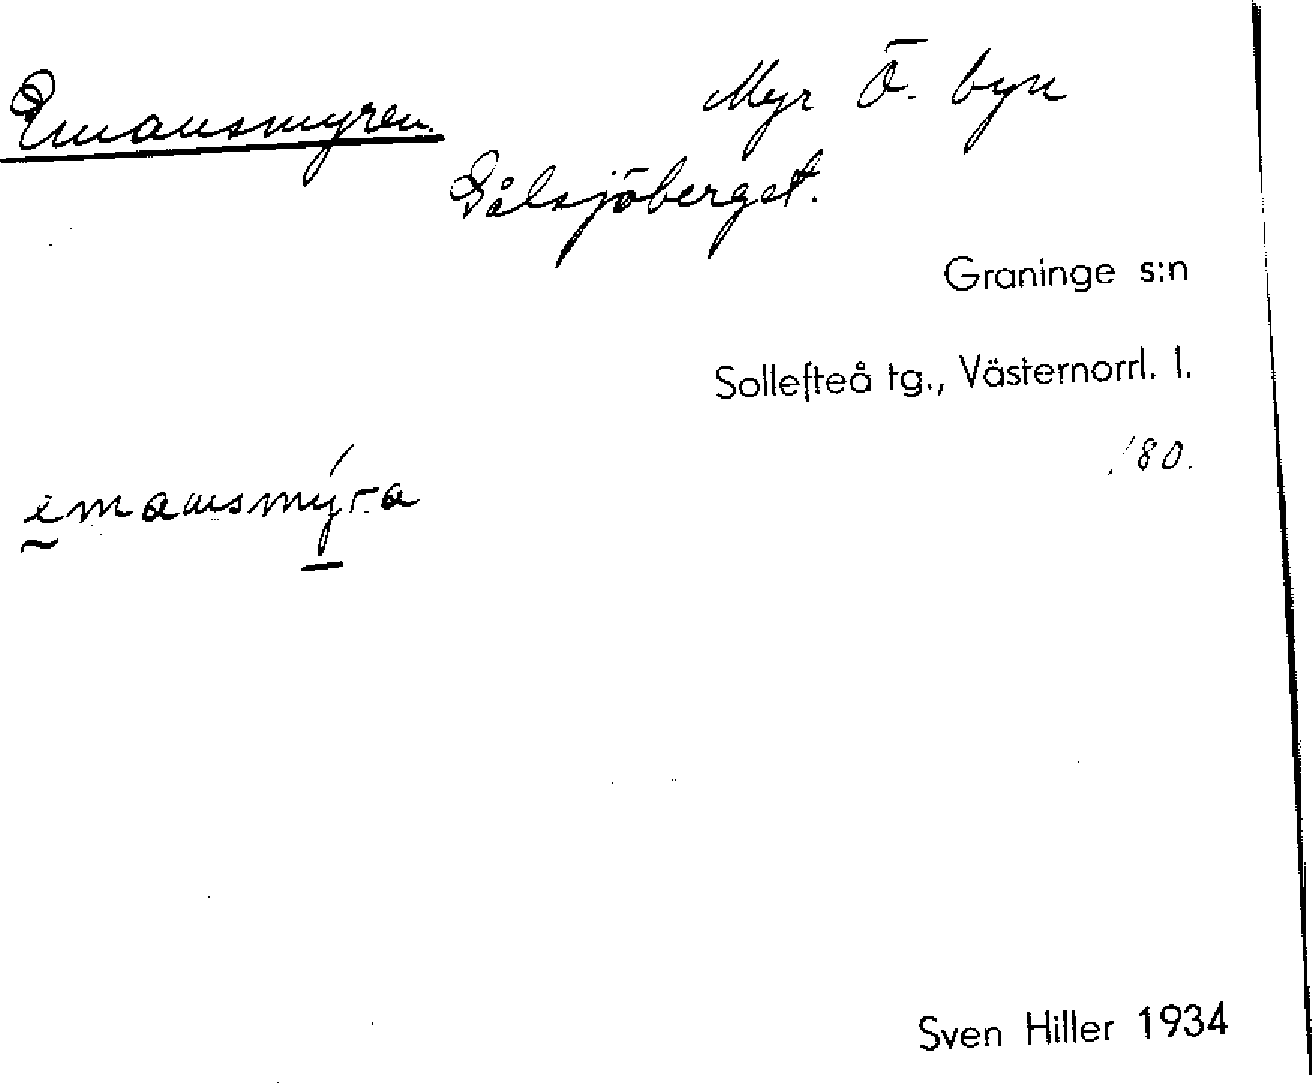 Emausmyren.
Myr Ö. byn
Dålsjöberget.
Graninge s:n
Sollefteå tg., Västernorrl. l.
180.
emausmýra
Sven Hiller 1934